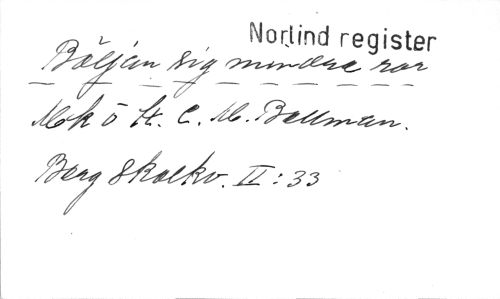 Norlind register
Böljan sig mindre rör
Mk o t. C. M. Bellman.
Berg Skolkv. II : 33